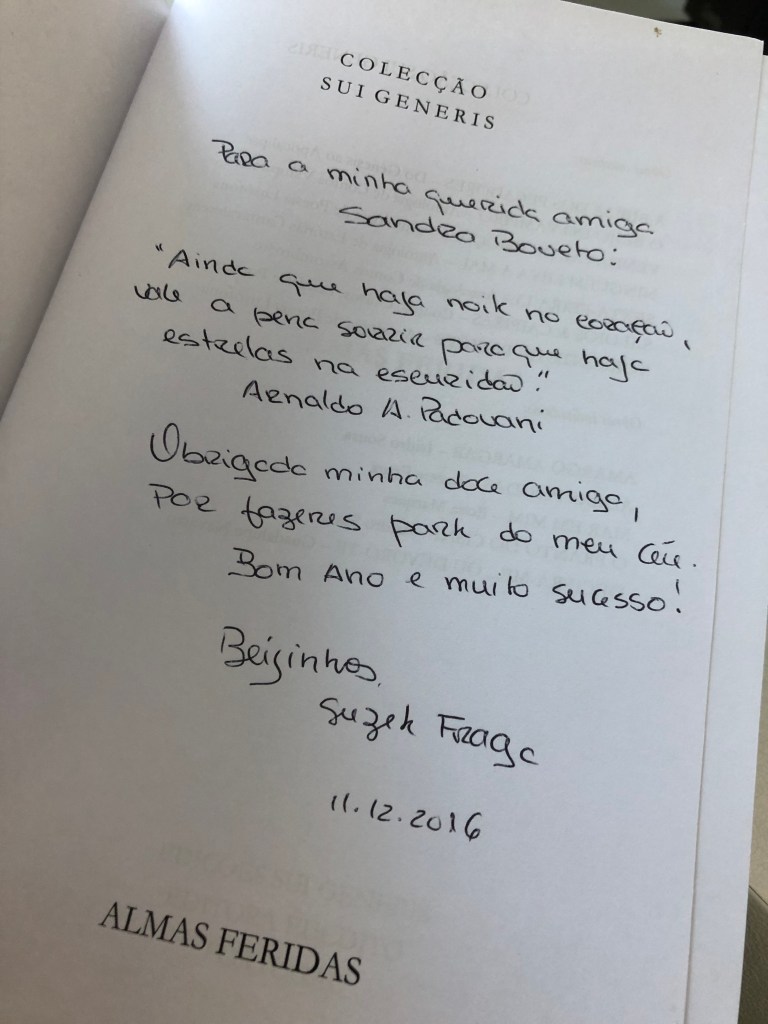 COLECÇÃO
SUI GENERIS
Para a minha querida amiga
Sandra Boveto:
"Ainda que haja noite no coração,
vale a pena sorrir para que haja
estrelas na escuridão."
Arnaldo A. Padovani
Obrigada minha doce amiga,
Por fazeres parte do meu Céu.
Bom Ano e muito sucesso!
Beijinhos,
Suzete Fraga
11.12.2016
ALMAS FERIDAS